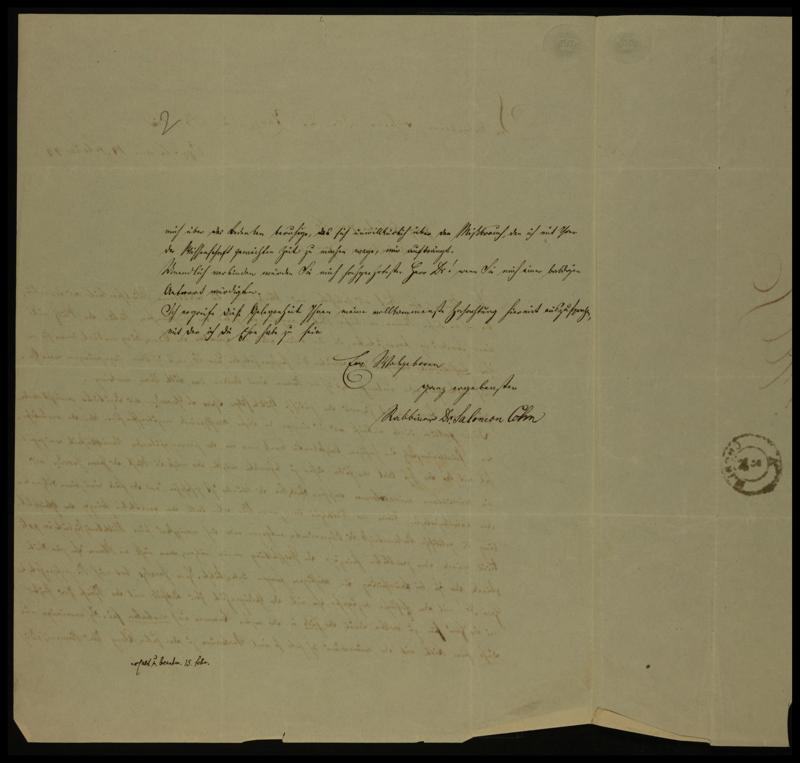 mich über das Bedenken beruhige, das sich unwillkürlich über den Mißbrauch den ich mit Ihrer
der Wissenschaft geweihten Zeit zu machen wage, mir aufdrängt.
Unendlich verbinden würden Sie mich hochgeehrtester Herr Dr! wenn Sie mich einer baldigen
Antwort würdigten.
Ich ergreife diese Gelegenheit Ihnen meine vollkommenste Hochachtung hiermit auszusprechen,
mit der ich die Ehre habe zu sein
Ew. Wohlgeboren
ganz ergebenster
Rabbiner Dr. Salomon Cohn
erhalt. u. beantw. 15. Febr.